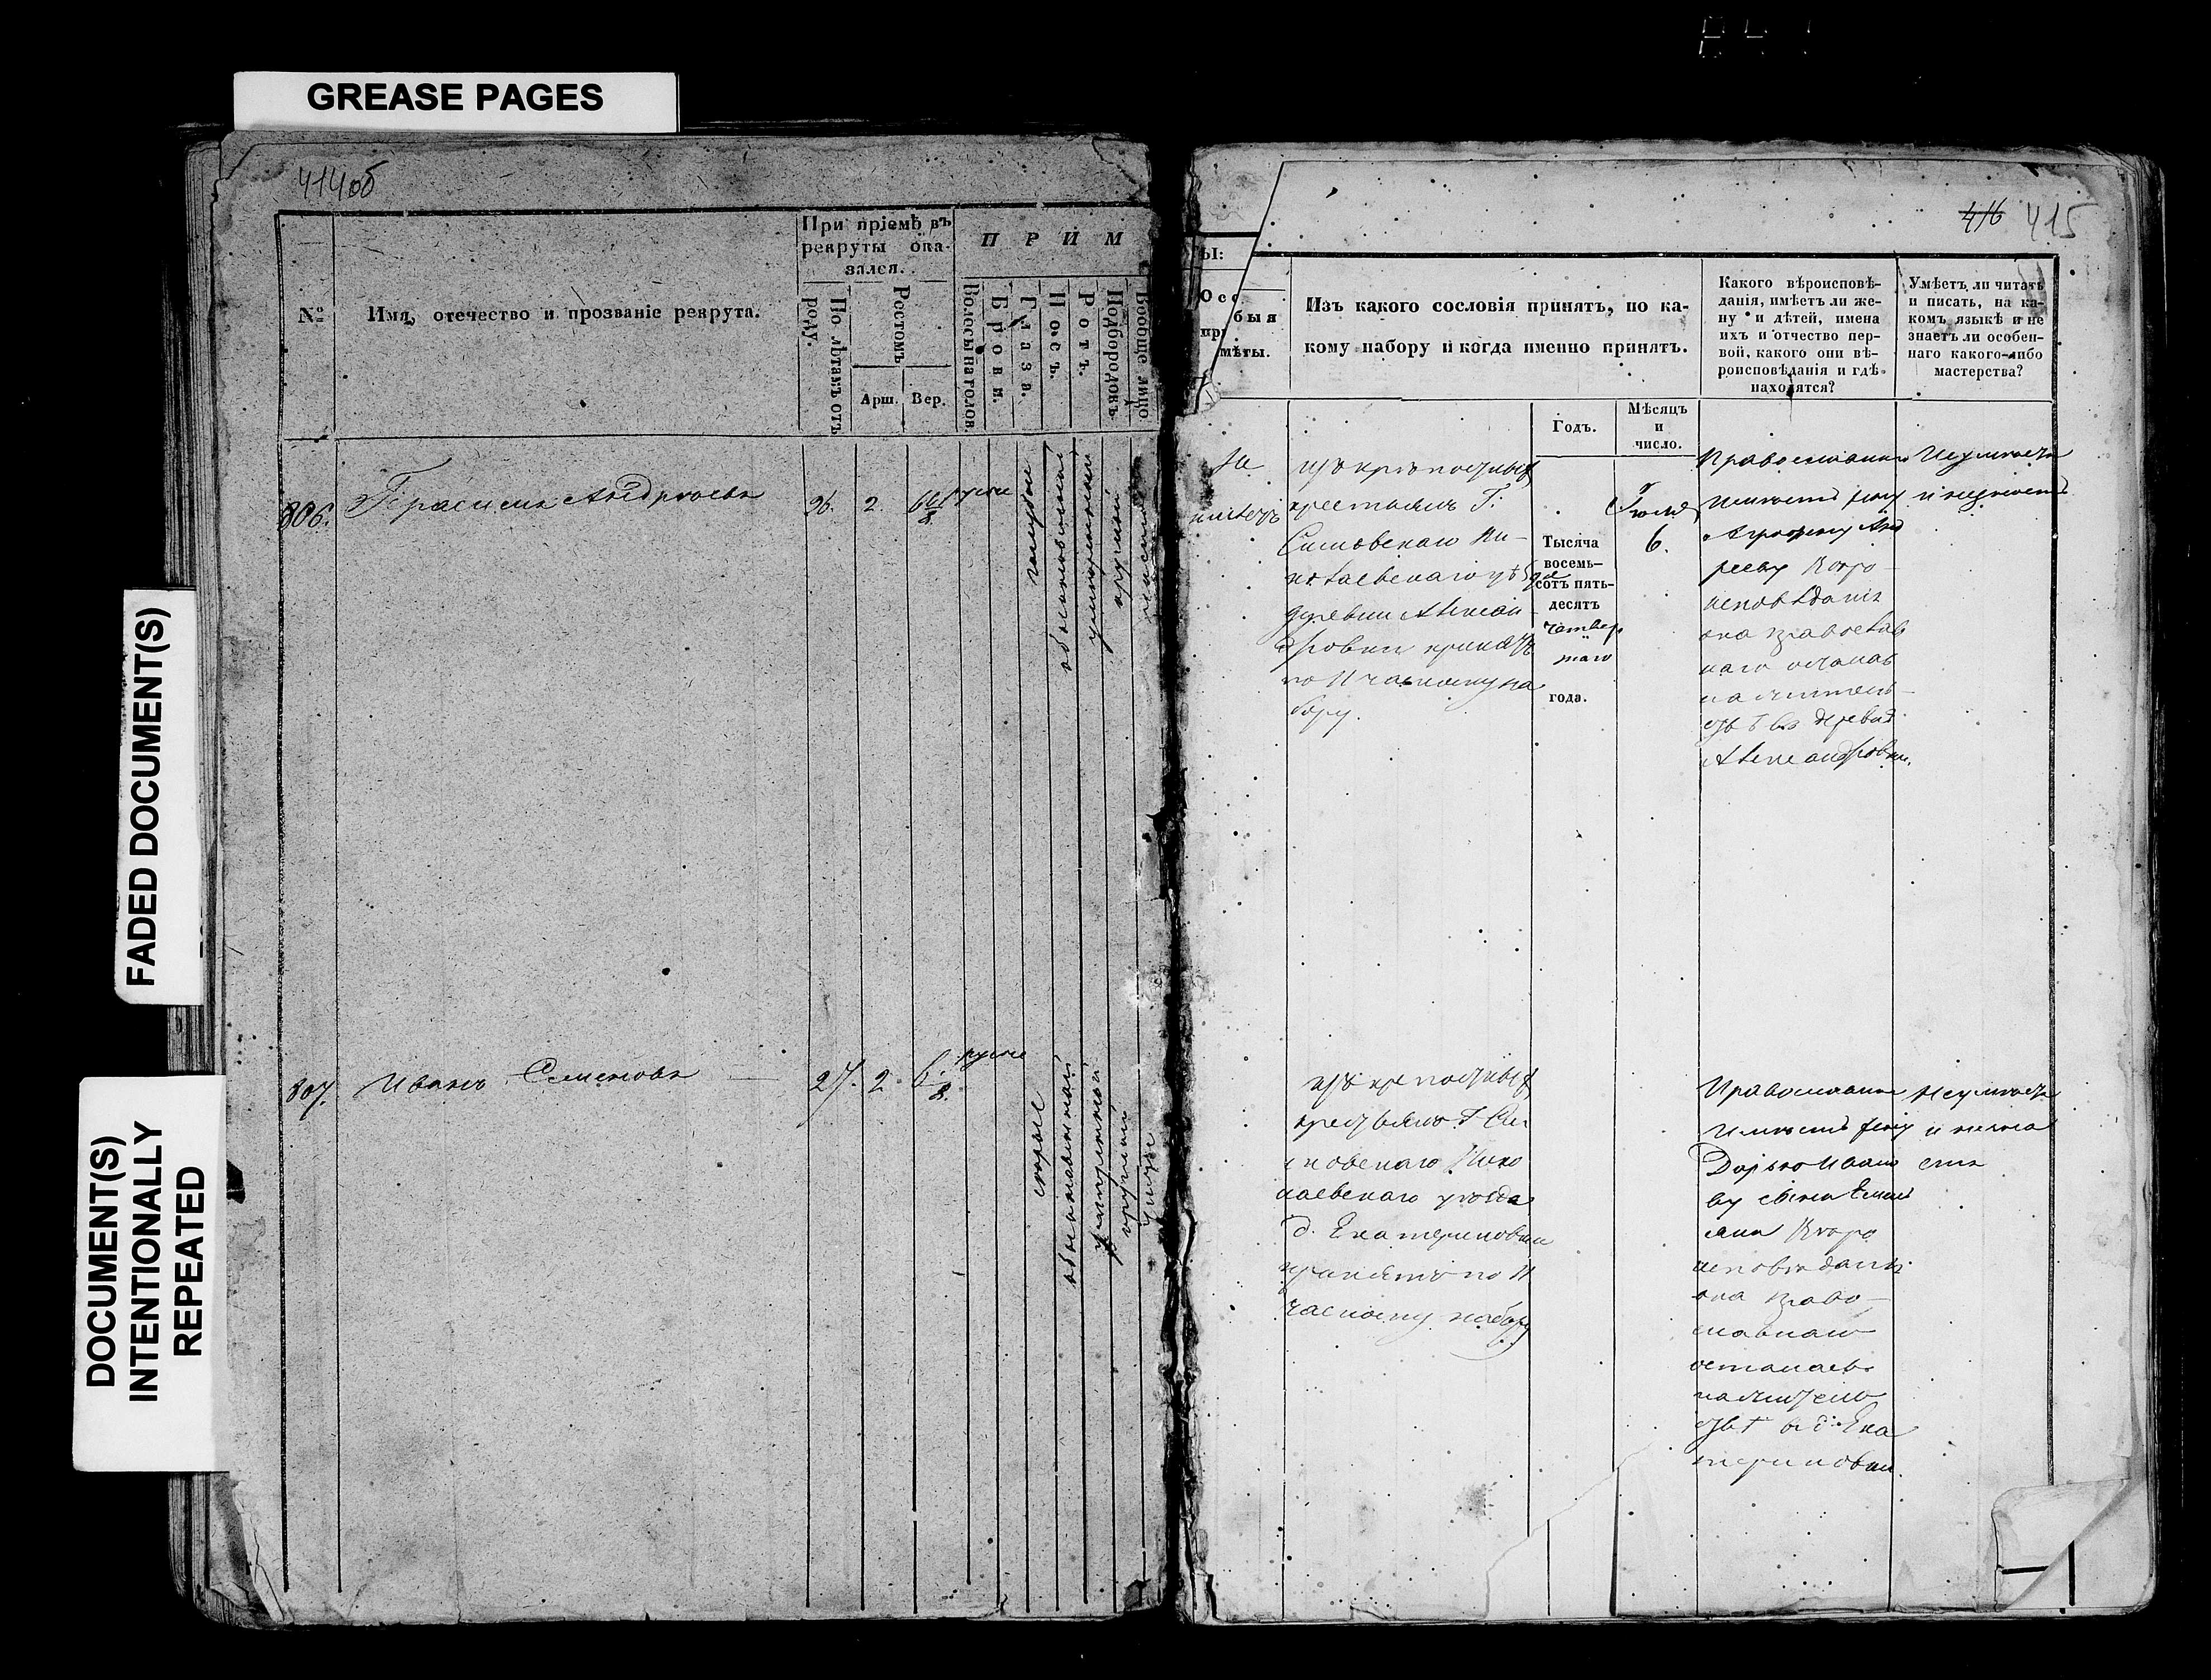 GREASE PAGES
FADED DOCUMENT(S)
DOCUMENT(S)
INTENTIONALLY
REPEATED
414об
№
Имя, отечество и прозваніе рекрута.
При пріемѣ въ
рекруты ока-
зался.
По лѣтамъ отъ
роду.
Ростомъ
Арш.
Вер.
П Р И М
Волосы на голов.
Брови.
Глаза.
Носъ.
Ротъ.
Подбородокъ
Вообще лицо
806.
Герасимъ Андрѣевъ
26.
2
6 6/8
русые
голубые
обыкновенный
умѣренный
круглый
807.
Иванъ Семеновъ
27.
2.
6/8.
русые
сѣрые
обыкновенный
умѣренный
круглый
чисто
416 415
Ы:
Особыя
примѣты.
Изъ какого сословія принятъ, по ка-
кому набору и когда именно принятъ.
Годъ.
Мѣсяцъ
и
число.
Какого вѣроисповѣ-
данія, имѣетъ ли же-
ну и дѣтей, имена
ихъ и отчество пер-
вой, какого они вѣ-
роисповѣданія и гдѣ
находятся?
Умѣетъ ли читать
и писать, на ка-
комъ языкѣ и не
знаетъ ли особен-
наго какого-либо
мастерства?
изъ крѣпостныхъ
крестьянъ Г:
Ни-
колаевскаго уѣзда
деревни Алексан-
дровки принятъ
по 11 частному на
бору.
Тысяча
восемь-
сотъ пять-
десятъ
четвер
таго
года.
Іюля
6.
Православнаго
имѣетъ жену
Агрофену Анд
рееву Вѣро
исповѣданія
она православ
наго осталась
на жительс
твѣ въ деревнѣ
Александровки.
Неумѣетъ
и незнаетъ
изъ крепостныхъ
крестьянъ Г
Нико
лаевскаго уѣзда
д. Екатериновки
принятъ по 11
часному набору
Православнаго
имѣетъ жену
Дарью Ивано
ву сына Емель
яна Вѣро
исповѣданія
она право
славнаго
осталась
на жительс
твѣ въ д. Ека
териновки.
Неумѣетъ